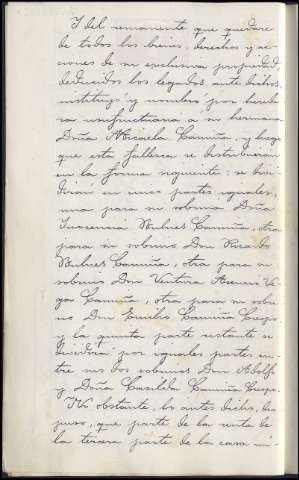 Y del remanente que quedare
de todos los bienes, derechos y ac-
ciones de su exclusiva propiedad,
deducidos los legados ante dichos,
instituyó y nombró por herede-
ra usufructuaria a su hermana
Doña Micaela Camiña, y luego
que esta fallezca se distribuirán
en la forma siguiente: se divi-
dirán en cinco partes iguales,
una para su sobrina Doña
Inocencia Nuñes Camiña, otra
para su sobrino Don Ricardo
Nuñes Camiña, otra para su
sobrino Don Ventura Asensi Ve-
ga Camiña, otra para su sobri-
no Don Emilio Camiña Crespo
y la quinta parte restante se
dividirá por iguales partes, en-
tre sus dos sobrinos Don Adolfo
y Doña Casilda Camiña Crespo.
No obstante, lo antes dicho, dis-
puso, que parte de la renta de
la tercera parte de la casa nú-